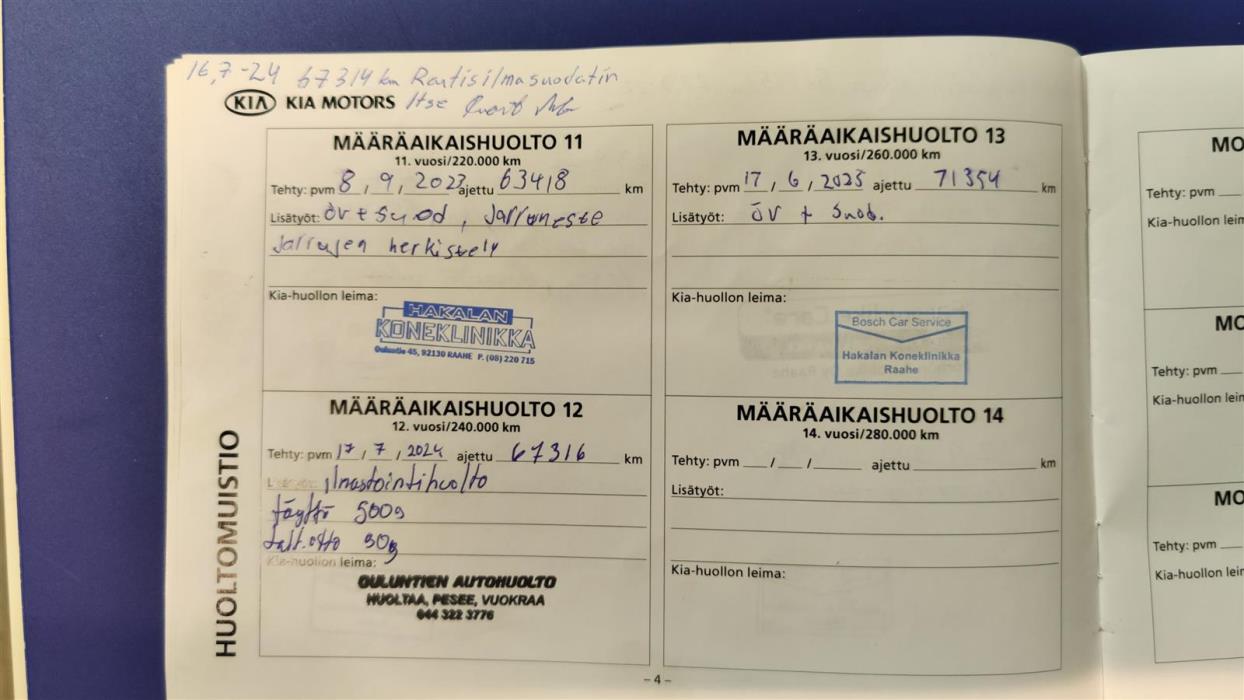 16,7-24 67314 km Raitisilmasuodatin
KIA KIA MOTORS Itse
MÄÄRÄAIKAISHUOLTO 11
11. vuosi/220.000 km
Tehty: pvm 8 / 9 / 2023 ajettu 63418 km
Lisätyöt: öv + suod, Jarruneste
Jarrujen herkistely
Kia-huollon leima:
HAKALAN
KONEKLINIKKA
Ouluntie 45, 92130 RAAHE P. (08) 220 715
MÄÄRÄAIKAISHUOLTO 12
12. vuosi/240.000 km
Tehty: pvm 17 / 7 / 2024 ajettu 67316 km
Ilmastointihuolto
täyttö 500g
talt.otto 30g
Kia-huollon leima:
OULUNTIEN AUTOHUOLTO
HUOLTAA, PESEE, VUOKRAA
044 322 3776
MÄÄRÄAIKAISHUOLTO 13
13. vuosi/260.000 km
Tehty: pvm 17 / 6 / 2025 ajettu 71354 km
Lisätyöt: öv + Suod.
Kia-huollon leima:
Bosch Car Service
Hakalan Koneklinikka
Raahe
MÄÄRÄAIKAISHUOLTO 14
14. vuosi/280.000 km
Tehty: pvm / / ajettu km
Lisätyöt:
Kia-huollon leima:
HUOLTOMUISTIO
- 4 -
Tehty: pvm
Tehty: pvm
Tehty: pvm